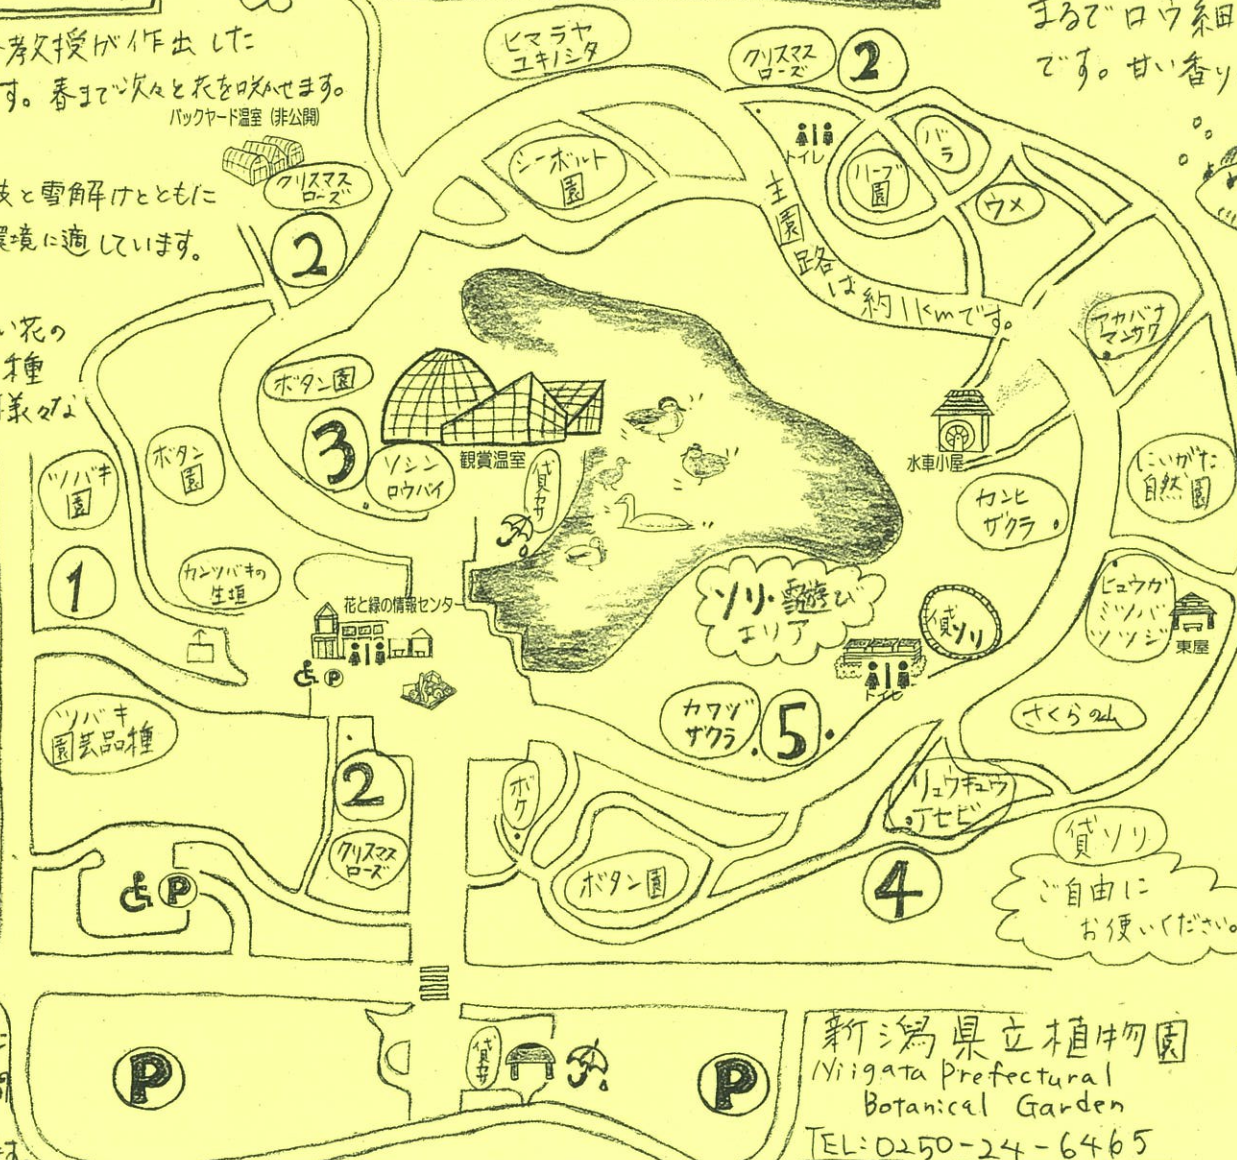 教授が作出した
す。春まで次々と花を咲かせます。
バックヤード温室(非公開)
クリスマス
ローズ
2
と雪解けとともに
環境に適しています。
い花の
種
様々な
ヒマラヤ
ユキノシタ
クリスマス
ローズ
2
まるでロウ細
です。甘い香り
シーボルト
園
トイレ
ハーブ
園
バラ
ウメ
主園路は約1kmです。
アカバナ
マンサク
ボタン園
3
ソシン
ロウバイ
観賞温室
貸カサ
水車小屋
カンヒ
ザクラ
にいがた
自然園
ツバキ
園
1
ボタン
園
カンツバキの
生垣
花と緑の情報センター
P
ソリ・雪遊び
エリア
貸ソリ
トイレ
ヒュウガ
ミツバ
ツツジ
東屋
カワヅ
ザクラ
5
さくらの山
ツバキ
園芸品種
2
クリスマス
ローズ
P
ボケ
ボタン園
リュウキュウ
アセビ
4
貸ソリ
ご自由に
お使いください。
P
貸カサ
P
新潟県立植物園
Niigata Prefectural
Botanical Garden
TEL:0250-24-6465